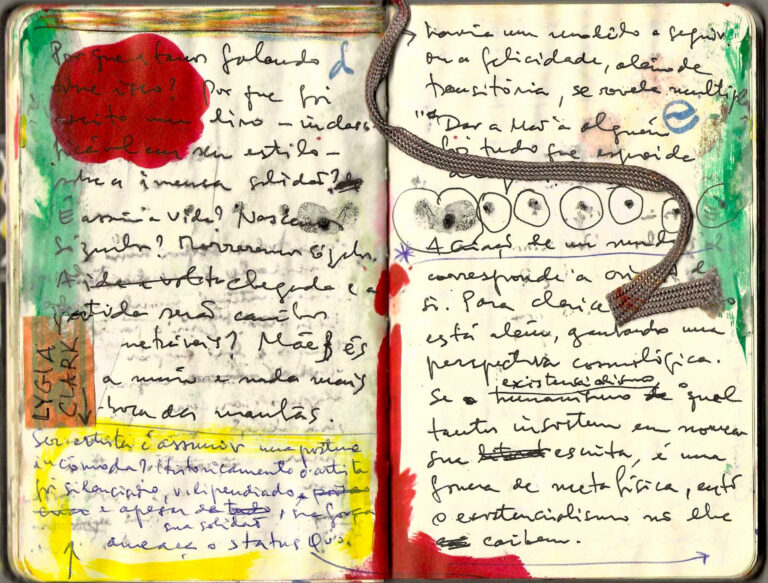 Por que estamos falando
sobre isso? Por que foi
escrito um livro – inclas
sificável em seu estilo –
sobre a imensa solidão?
É assim a vida? Nascemos
sozinhos? Morreremos sozinhos
A ida e volta chegada e a
partida serão caminhos
? Mãe és
a mais e nada mais
boca das manhãs.
LYGIA
CLARK
Ser artista é assumir uma postura
incômoda? Historicamente o artista
foi silenciado, vilipendiado e
e apesar de tudo, sua força
sua solidão
ameaça o status Quo.
havia um sentido a seguir
ou a felicidade, além de
transitória, se revela multipla
"Dar a mão a alguém
foi tudo que esperei da
A criação de um mundo
corresponde a origem de
si. Para Clarice
está além, ganhando uma
perspectiva cosmológica.
existencialismo
Se o humanismo de o qual
tantos insistem em
sua escrita, é uma
forma de metafísica, então
o existencialismo não lhe
caibem.